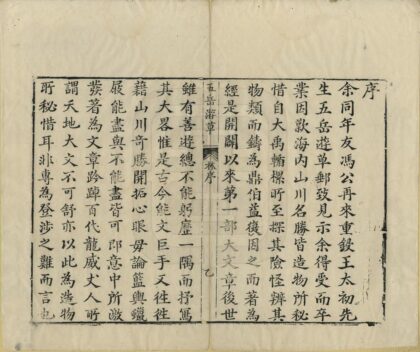 序
余同年友馮公再來重鋟王太初先
生五岳遊草郵致見示余得受而卒
業因歎海內山川名勝皆造物所秘
惜自大禹輴樏所至探其險怪辨其
物類而鑄為鼎伯益復因之而著為
經是開闢以來第一部大文章後世
五岳游草
卷序
乙
雖有善遊總不能躬歷一隅而抒寫
其大畧惟是古今能文巨手又往往
藉山川奇勝開拓心眼毋論籃輿蠟
屐能盡與不能盡皆可即意中所欲
發著為文章跨踔百代龍威丈人所
謂天地大文不可舒亦以此為造物
所秘惜耳非專為登涉之難而言也